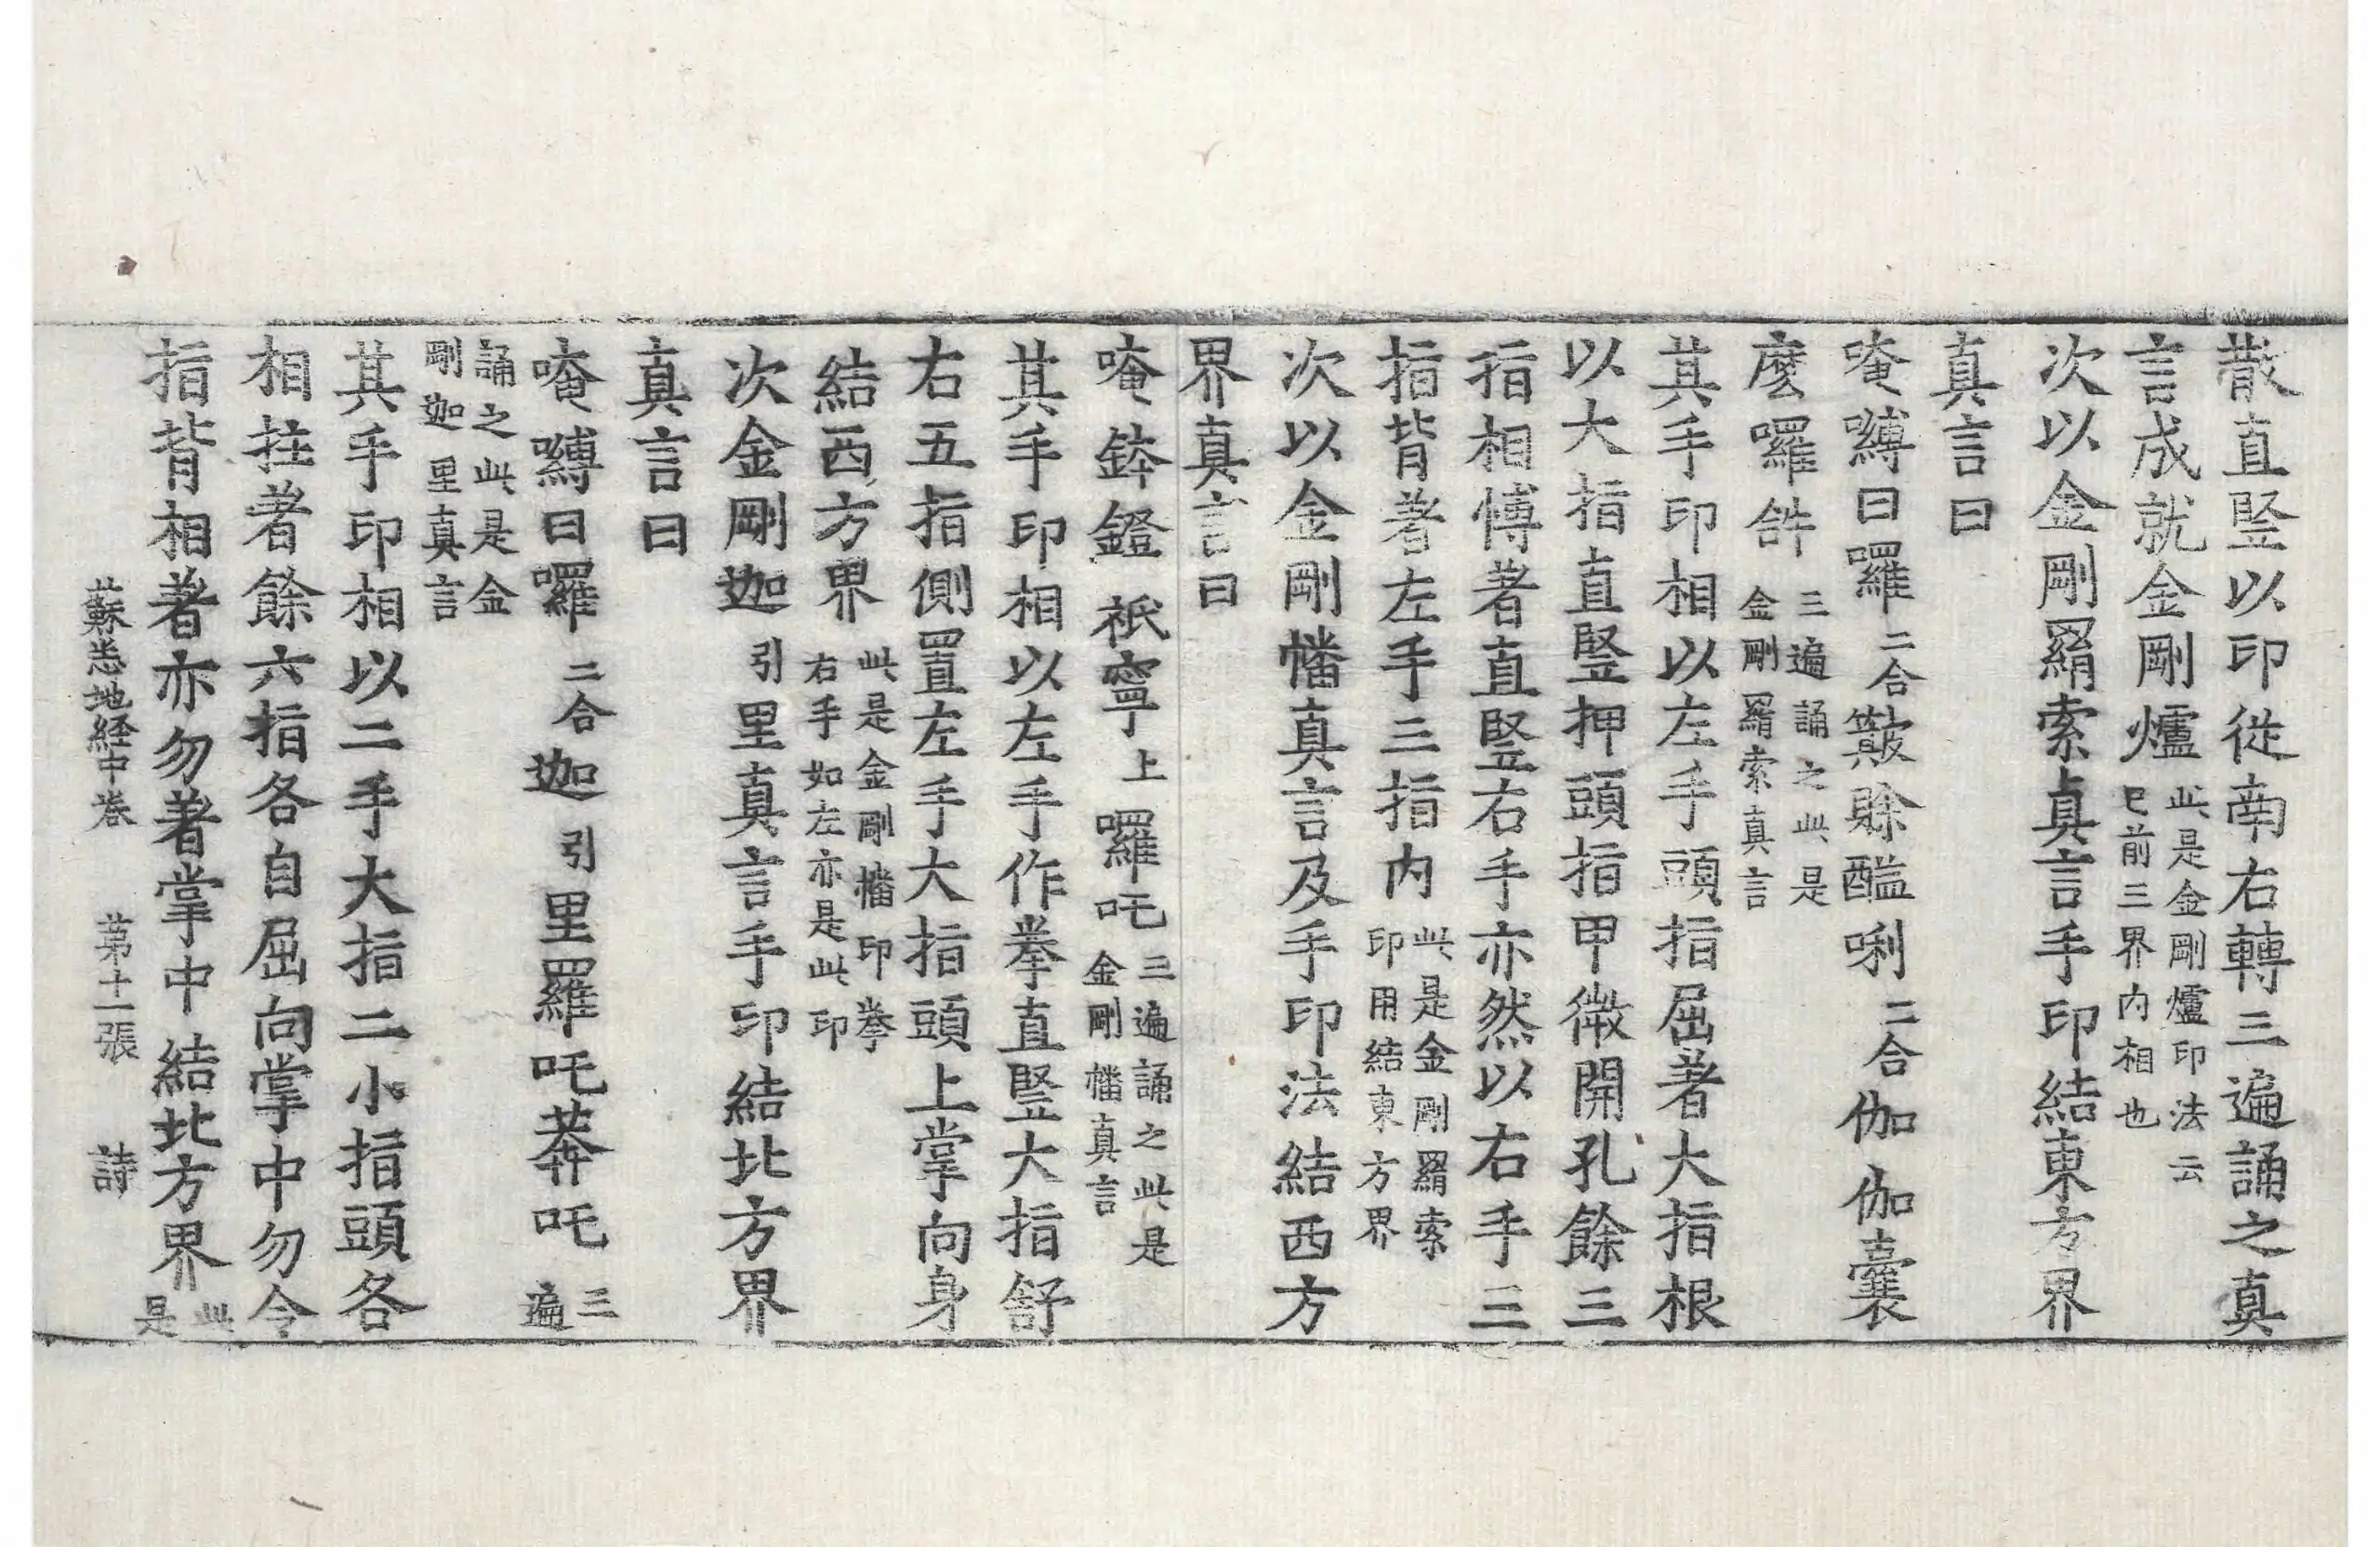 散直竪以印從南右轉三遍誦之真
言成就金剛爐此是金剛爐印法云已前三界内相也
次以金剛羂索真言手印結東方界
真言曰
唵嚩日囉二合皾賖醯唎二合伽伽囊
麽囉䤈三遍誦之此是金剛羂索真言
其手印相以左手頭指屈著大指根
以大指直竪押頭指甲微開孔餘三
指相愽著直竪右手亦然以右手三
指背著左手三指内此是金剛羂索印用結東方界
次以金剛幡真言及手印法結西方
界真言曰
唵鉢鐙祇寧上囉吒三遍誦之此是金剛幡真言
其手印相以左手作拳直竪大指舒
右五指側置左手大指頭上掌向身
結西方界此是金剛幡印拳右手如左亦是此印
次金剛迦引里真言手印結北方界
真言曰
唵嚩日囉二合迦引里羅吒莾吒三遍
誦之此是金剛迦里真言
其手印相以二手大指二小指頭各
相拄著餘六指各自屈向掌中勿令
指背相著亦勿著掌中結北方界此是
蘇悉地經中卷 苐十一張 詩